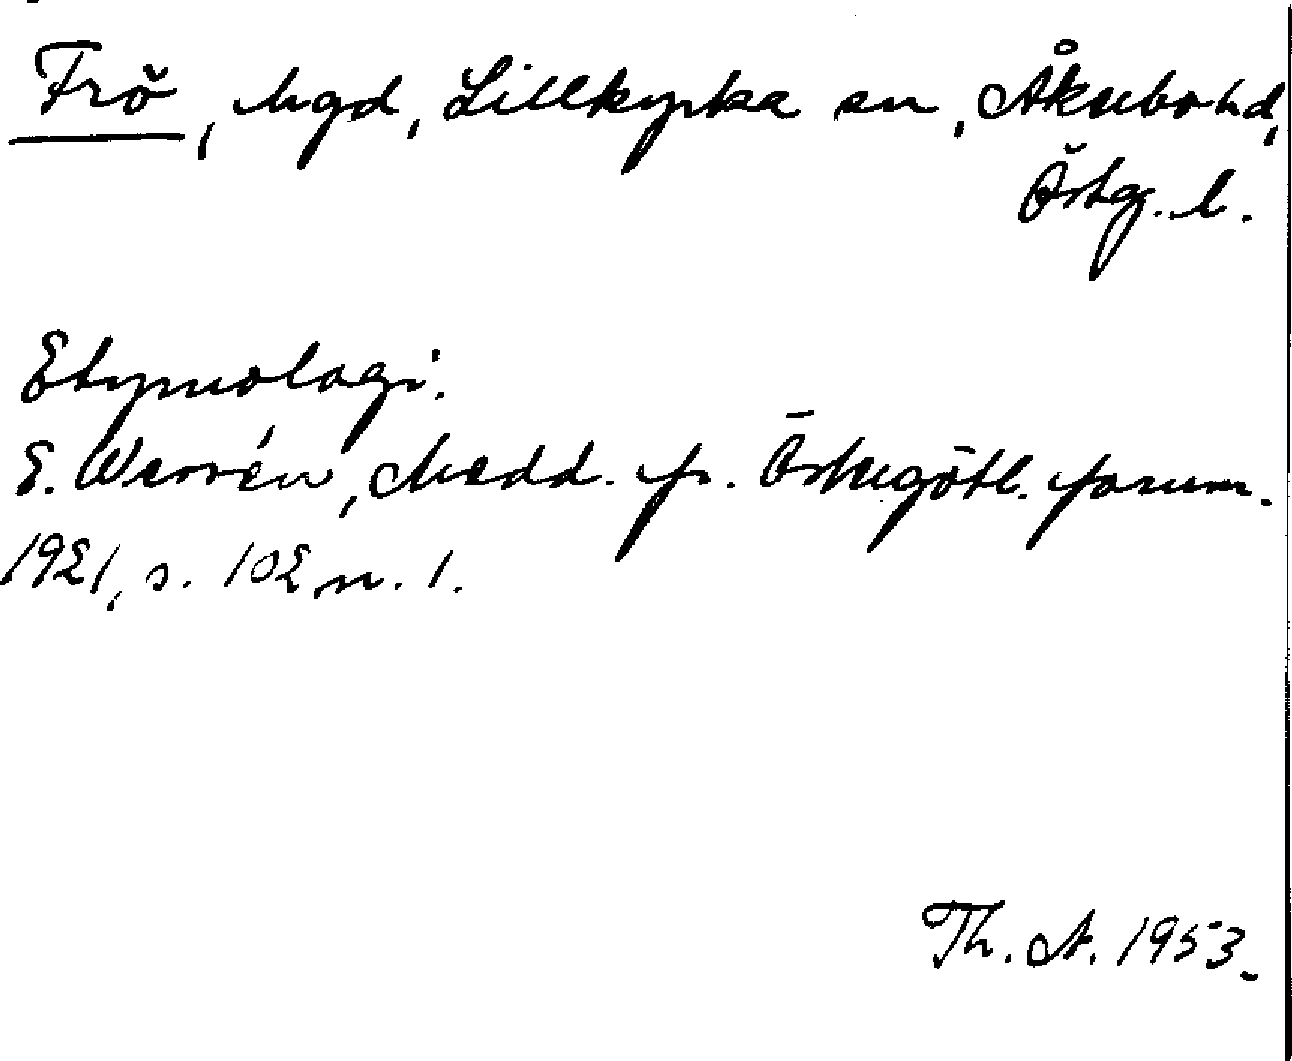 Frö, hgd, Lillkyrka sn, Åkerbo hd,
Östg. l.
Etymologi.
E. Wessén, Medd. fr. Östergötl. fornm.
1921, s. 102 n. 1.
Th. A. 1953.